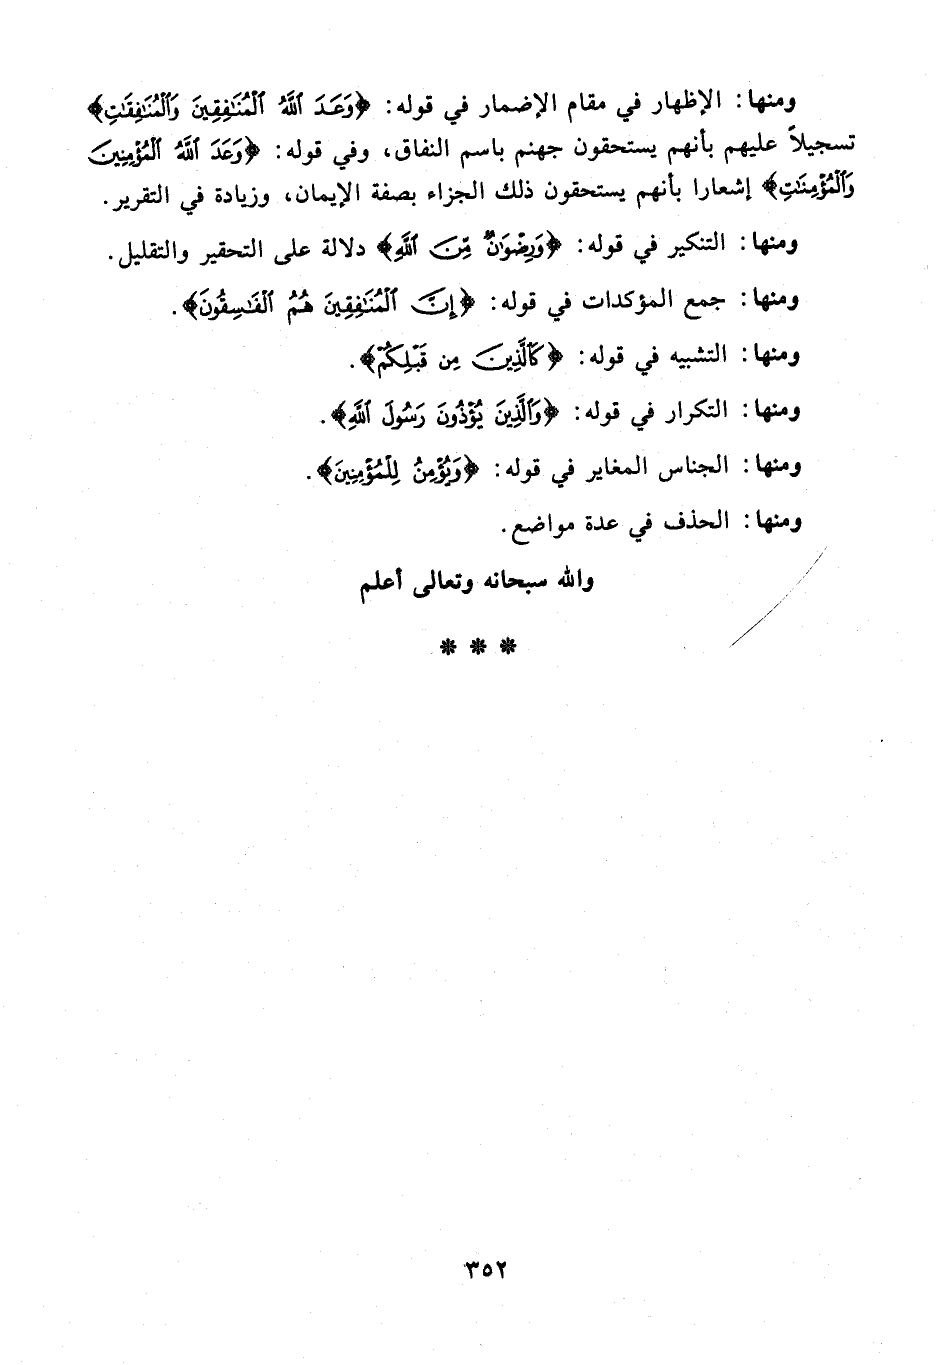 ومنها: الإظهار في مقام الإضمار في قوله: ﴿وَعَدَ ٱللَّهُ ٱلْمُنَٰفِقِينَ وَٱلْمُنَٰفِقَٰتِ﴾
تسجيلاً عليهم بأنهم يستحقون جهنم باسم النفاق، وفي قوله: ﴿وَعَدَ ٱللَّهُ ٱلْمُؤْمِنِينَ
وَٱلْمُؤْمِنَٰتِ﴾ إشعارا بأنهم يستحقون ذلك الجزاء بصفة الإيمان، وزيادة في التقرير.
ومنها: التنكير في قوله: ﴿وَرِضْوَٰنٌ مِّنَ ٱللَّهِ﴾ دلالة على التحقير والتقليل.
ومنها: جمع المؤكدات في قوله: ﴿إِنَّ ٱلْمُنَٰفِقِينَ هُمُ ٱلْفَٰسِقُونَ﴾.
ومنها: التشبيه في قوله: ﴿كَٱلَّذِينَ مِن قَبْلِكُمْ﴾.
ومنها: التكرار في قوله: ﴿وَٱلَّذِينَ يُؤْذُونَ رَسُولَ ٱللَّهِ﴾.
ومنها: الجناس المغاير في قوله: ﴿وَيُؤْمِنُ لِلْمُؤْمِنِينَ﴾.
ومنها: الحذف في عدة مواضع.
والله سبحانه وتعالى أعلم
* * *
٣٥٢